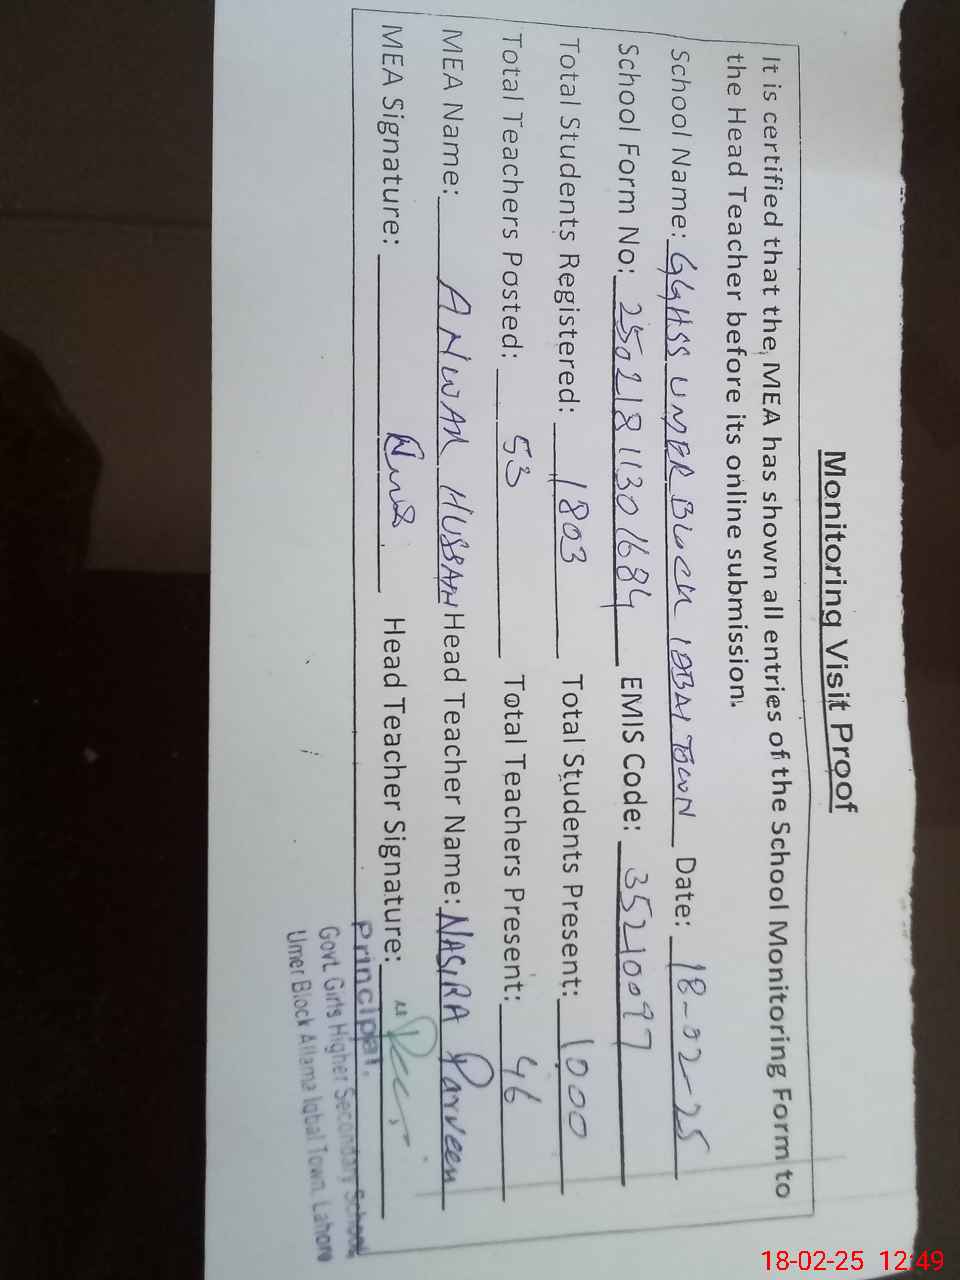 Monitoring Visit Proof
It is certified that the MEA has shown all entries of the School Monitoring Form to
the Head Teacher before its online submission.
School Name: GGHSS UMER BLOCK IQBAL TOWN Date: 18-02-25
School Form No: 250218 1130 1684 EMIS Code: 35210097
Total Students Registered: 1803 Total Students Present: 1000
Total Teachers Posted: 53 Total Teachers Present: 46
MEA Name: ANWAR HUSSAIN Head Teacher Name: NASIRA Parveen
MEA Signature: Head Teacher Signature:
Principal,
Govt. Girls Higher Secondary School
Umer Block Allama Iqbal Town, Lahore
18-02-25 12:49